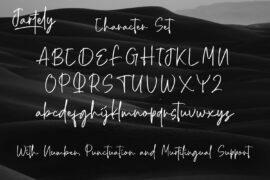 Jartely
Character Set
ABCDEFGHIJKLMN
OPQRSTUVWXYZ
abcdefghijklmnopqrstuvwxyz
With Number, Punctuation and Multilingual Support